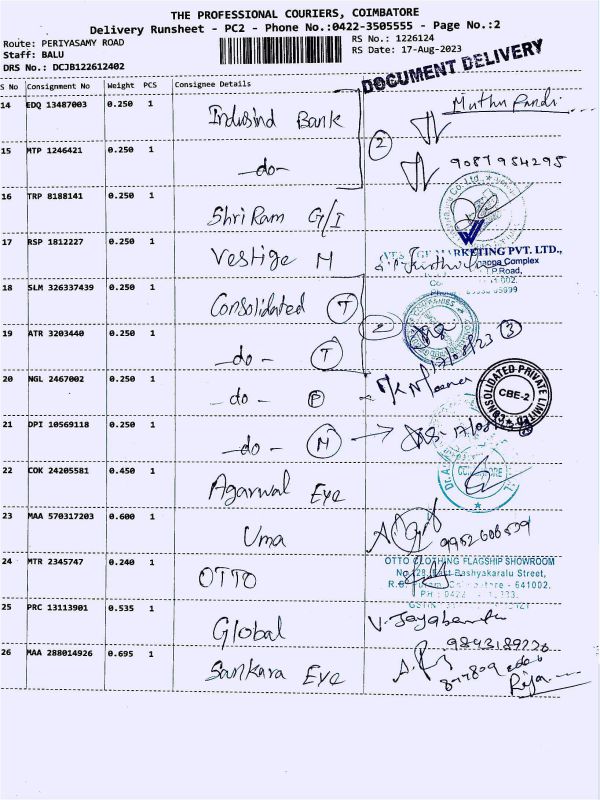 THE PROFESSIONAL COURIERS, COIMBATORE
Delivery Runsheet - PC2 - Phone No.:0422-3505555 - Page No.:2
Route: PERIYASAMY ROAD
RS No.: 1226124
Staff: BALU
RS Date: 17-Aug-2023
DRS No.: DCJB122612402
DOCUMENT DELIVERY
S No Consignment No Weight PCS Consignee Details
14 EDQ 13487003 0.250 1 Indusind Bank
15 MTP 1246421 0.250 1 -do- 2 9087954295
16 TRP 8188141 0.250 1 ShriRam G/I
17 RSP 1812227 0.250 1 Vestige M
MARKETING PVT. LTD.,
Complex
T.P.Road,
18 SLM 326337439 0.250 1 Consolidated T
19 ATR 3203440 0.250 1 -do- T 17/08/23 3
20 NGL 2467002 0.250 1 -do- P
CONSOLIDATED PRIVATE LIMITED
CBE-2
21 DPI 10569118 0.250 1 -do- M
22 COK 24205581 0.450 1 Agarwal Eye
23 MAA 570317203 0.600 1 Uma
24 MTR 2345747 0.240 1 OTTO
OTTO CLOTHING FLAGSHIP SHOWROOM
Bashyakaralu Street,
- 641002.
25 PRC 13113901 0.535 1 Global
26 MAA 288014926 0.695 1 Sankara Eye